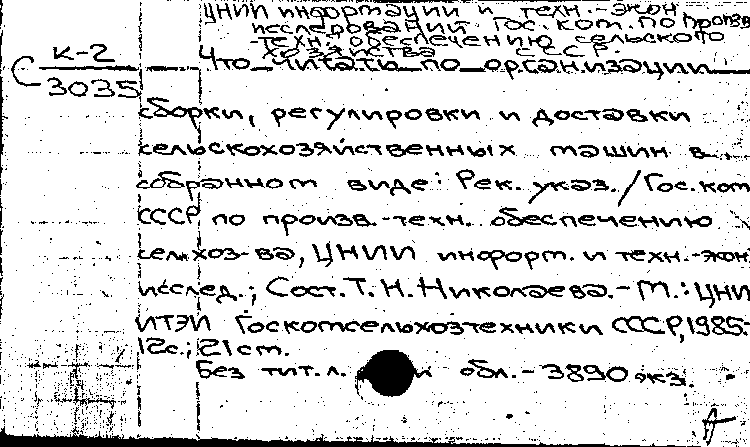 ЦНИИ информации и техн.-экон
исследований Гос. ком. по произв
-техн. обеспечению сельского
хозяйства СССР
К-2
С 3035
Что читать по организации
сборки, регулировки и доставки
сельскохозяйственных машин в
собранном виде: Рек. указ./Гос. ком
СССР по произв.-техн. обеспечению
сельхоз-ва, ЦНИИ информ. и техн.-экон
исслед.; Сост. Т. Н. Николаева. - М.: ЦНИ
ИТЭИ Госкомсельхозтехники СССР, 1985.
12с.; 21см.
Без тит. л. и обл. - 3890 экз.